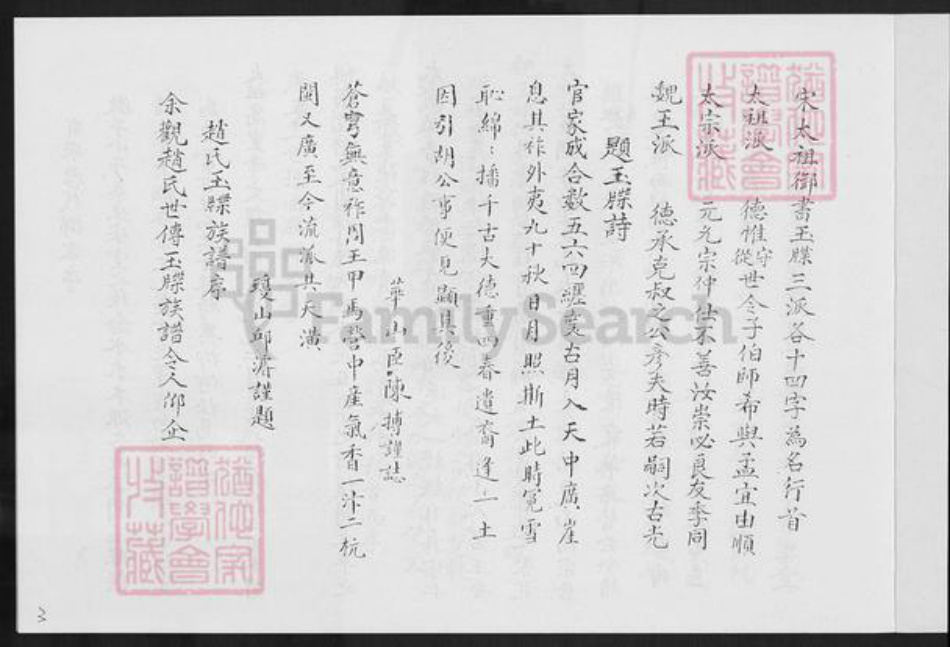 宋太祖御書玉牒三派各十四字為名行首
太祖派 德惟守從世令子伯師希與孟宜由順
太宗派 元允宗仲仕不善汝崇必良友季同
魏王派 德承克叔之公彥夫時若嗣次古光
題玉牒詩
官家成合數五六四纏 古月入天中廣崖
息其祚外夷九十秋日月照斯土此時冤雪
恥綿〻播千古大德重四春遺裔逢一土
因引胡公事便見顯其後
華山臣陳摶謹誌
蒼穹無意祚周王甲馬營中產氣香一汴二杭
閩又廣至今流派共天潢
瓊山邱濬謹題
趙氏玉牒族譜序
余觀趙氏世傳玉牒族譜令人仰企
FamilySearch